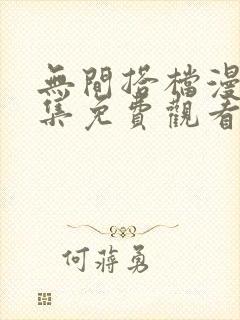 無間搭檔漫
集免費觀看
何蔣勇